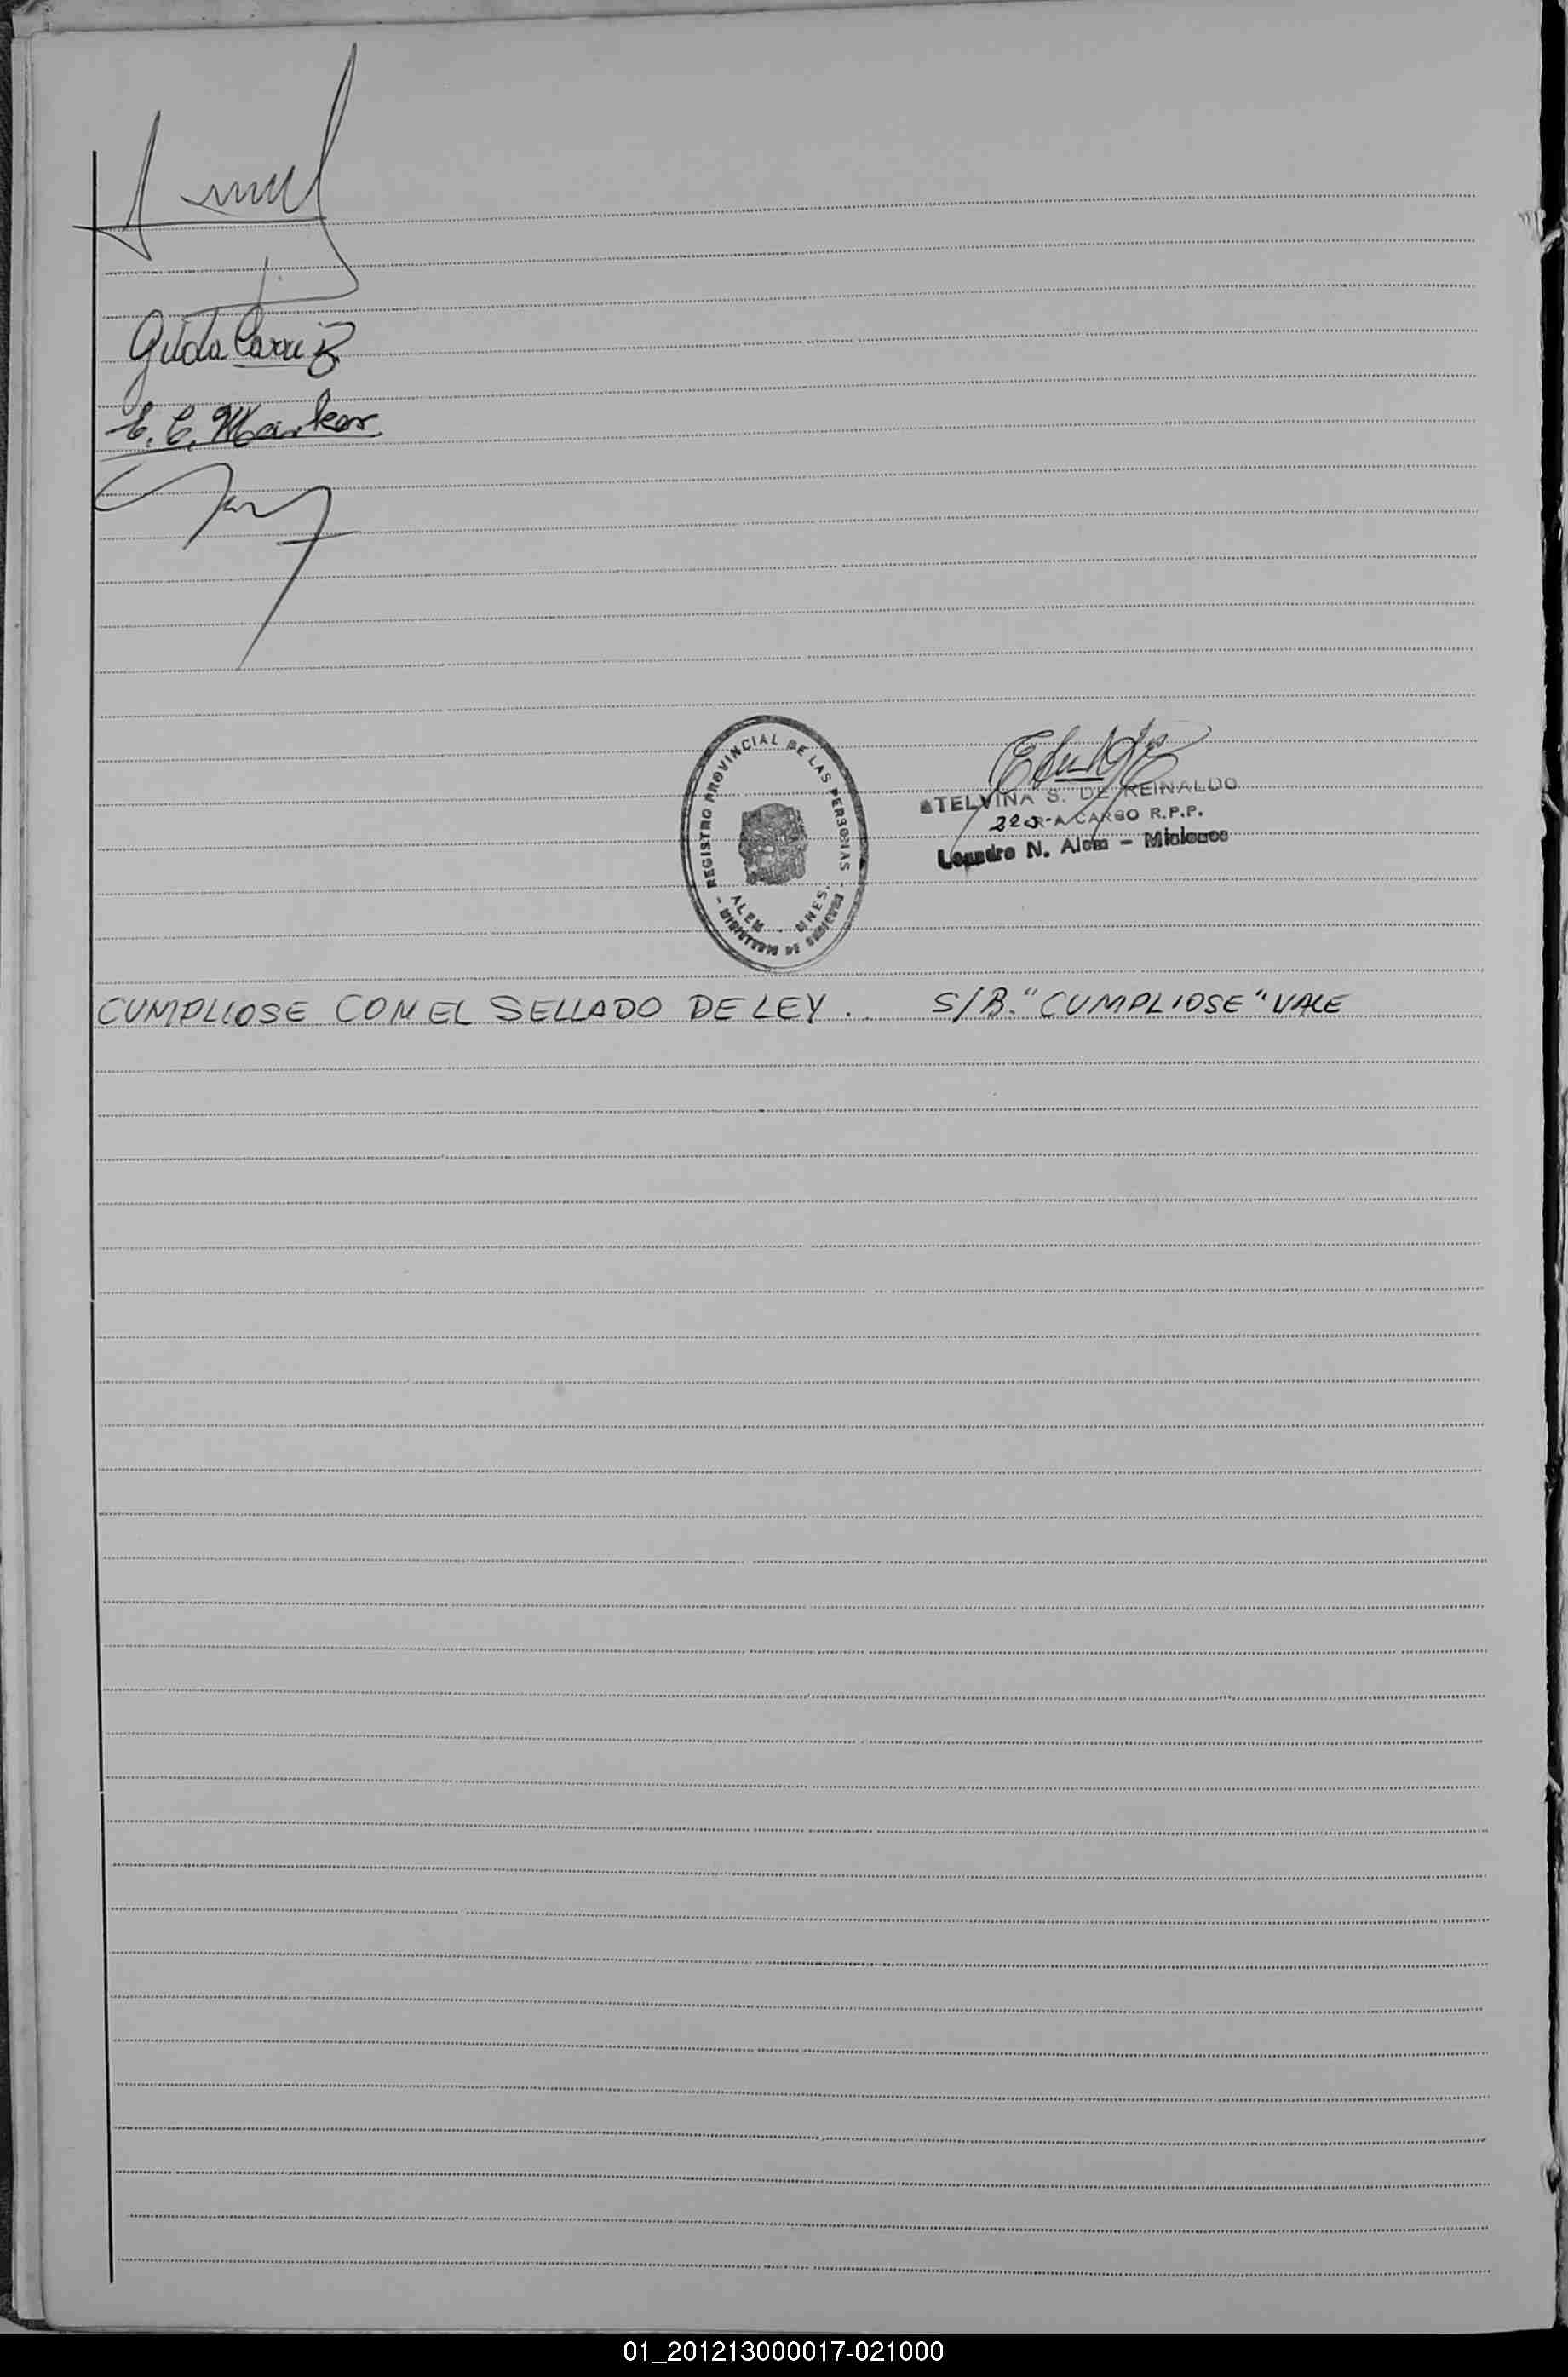 E. C. Markos
REGISTRO PROVINCIAL DE LAS PERSONAS
ALEM - MNES.
- MINISTERIO DE GOBIERNO -
ETELVINA S. DE REINALDO
A CARGO R.P.P.
Leandro N. Alem - Misiones
CUMPLIOSE CON EL SELLADO DE LEY. S/B. "CUMPLIOSE" VALE
01_201213000017-021000